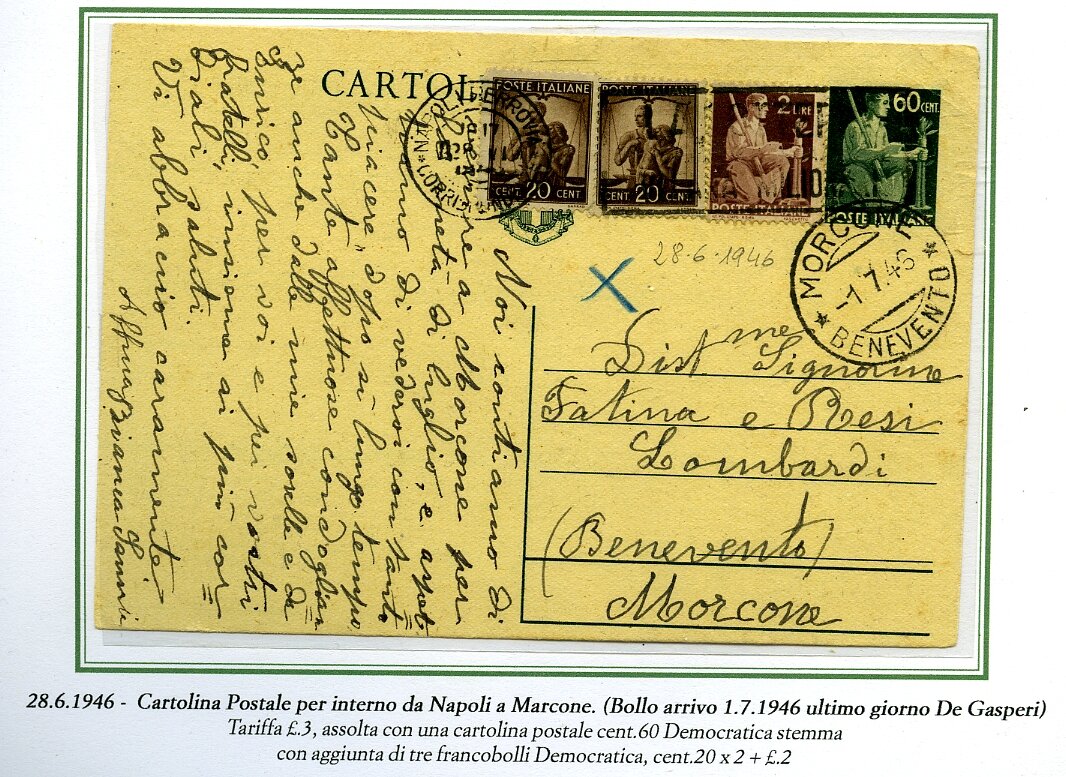 CARTOL
POSTE ITALIANE
CENT. 20 CENT.
POSTE ITALIANE
CENT. 20 CENT.
2 LIRE
POSTE ITALIANE
60 CENT.
POSTE ITALIANE
NAPOLI FERROVIA
CORRISP
28.6.1946
MORCONE
-1.7.46
* BENEVENTO *
X
Dist me Signorine
Fatina e Resi
Lombardi
(Benevento)
Morcone
Noi contiamo di
venire a Morcone per
metà di luglio, e aspet
tiamo di vedervi con tanto
piacere, dopo sì lungo tempo
Tante affettuose condoglian
ze anche dalle mie sorelle e da
Enrico, per voi e pei vostri
fratelli, insieme ai più cor=
diali saluti.
Vi abbraccio caramente
Affma Bianca Sannii
28.6.1946 - Cartolina Postale per interno da Napoli a Marcone. (Bollo arrivo 1.7.1946 ultimo giorno De Gasperi)
Tariffa £.3, assolta con una cartolina postale cent.60 Democratica stemma
con aggiunta di tre francobolli Democratica, cent.20 x 2 + £.2